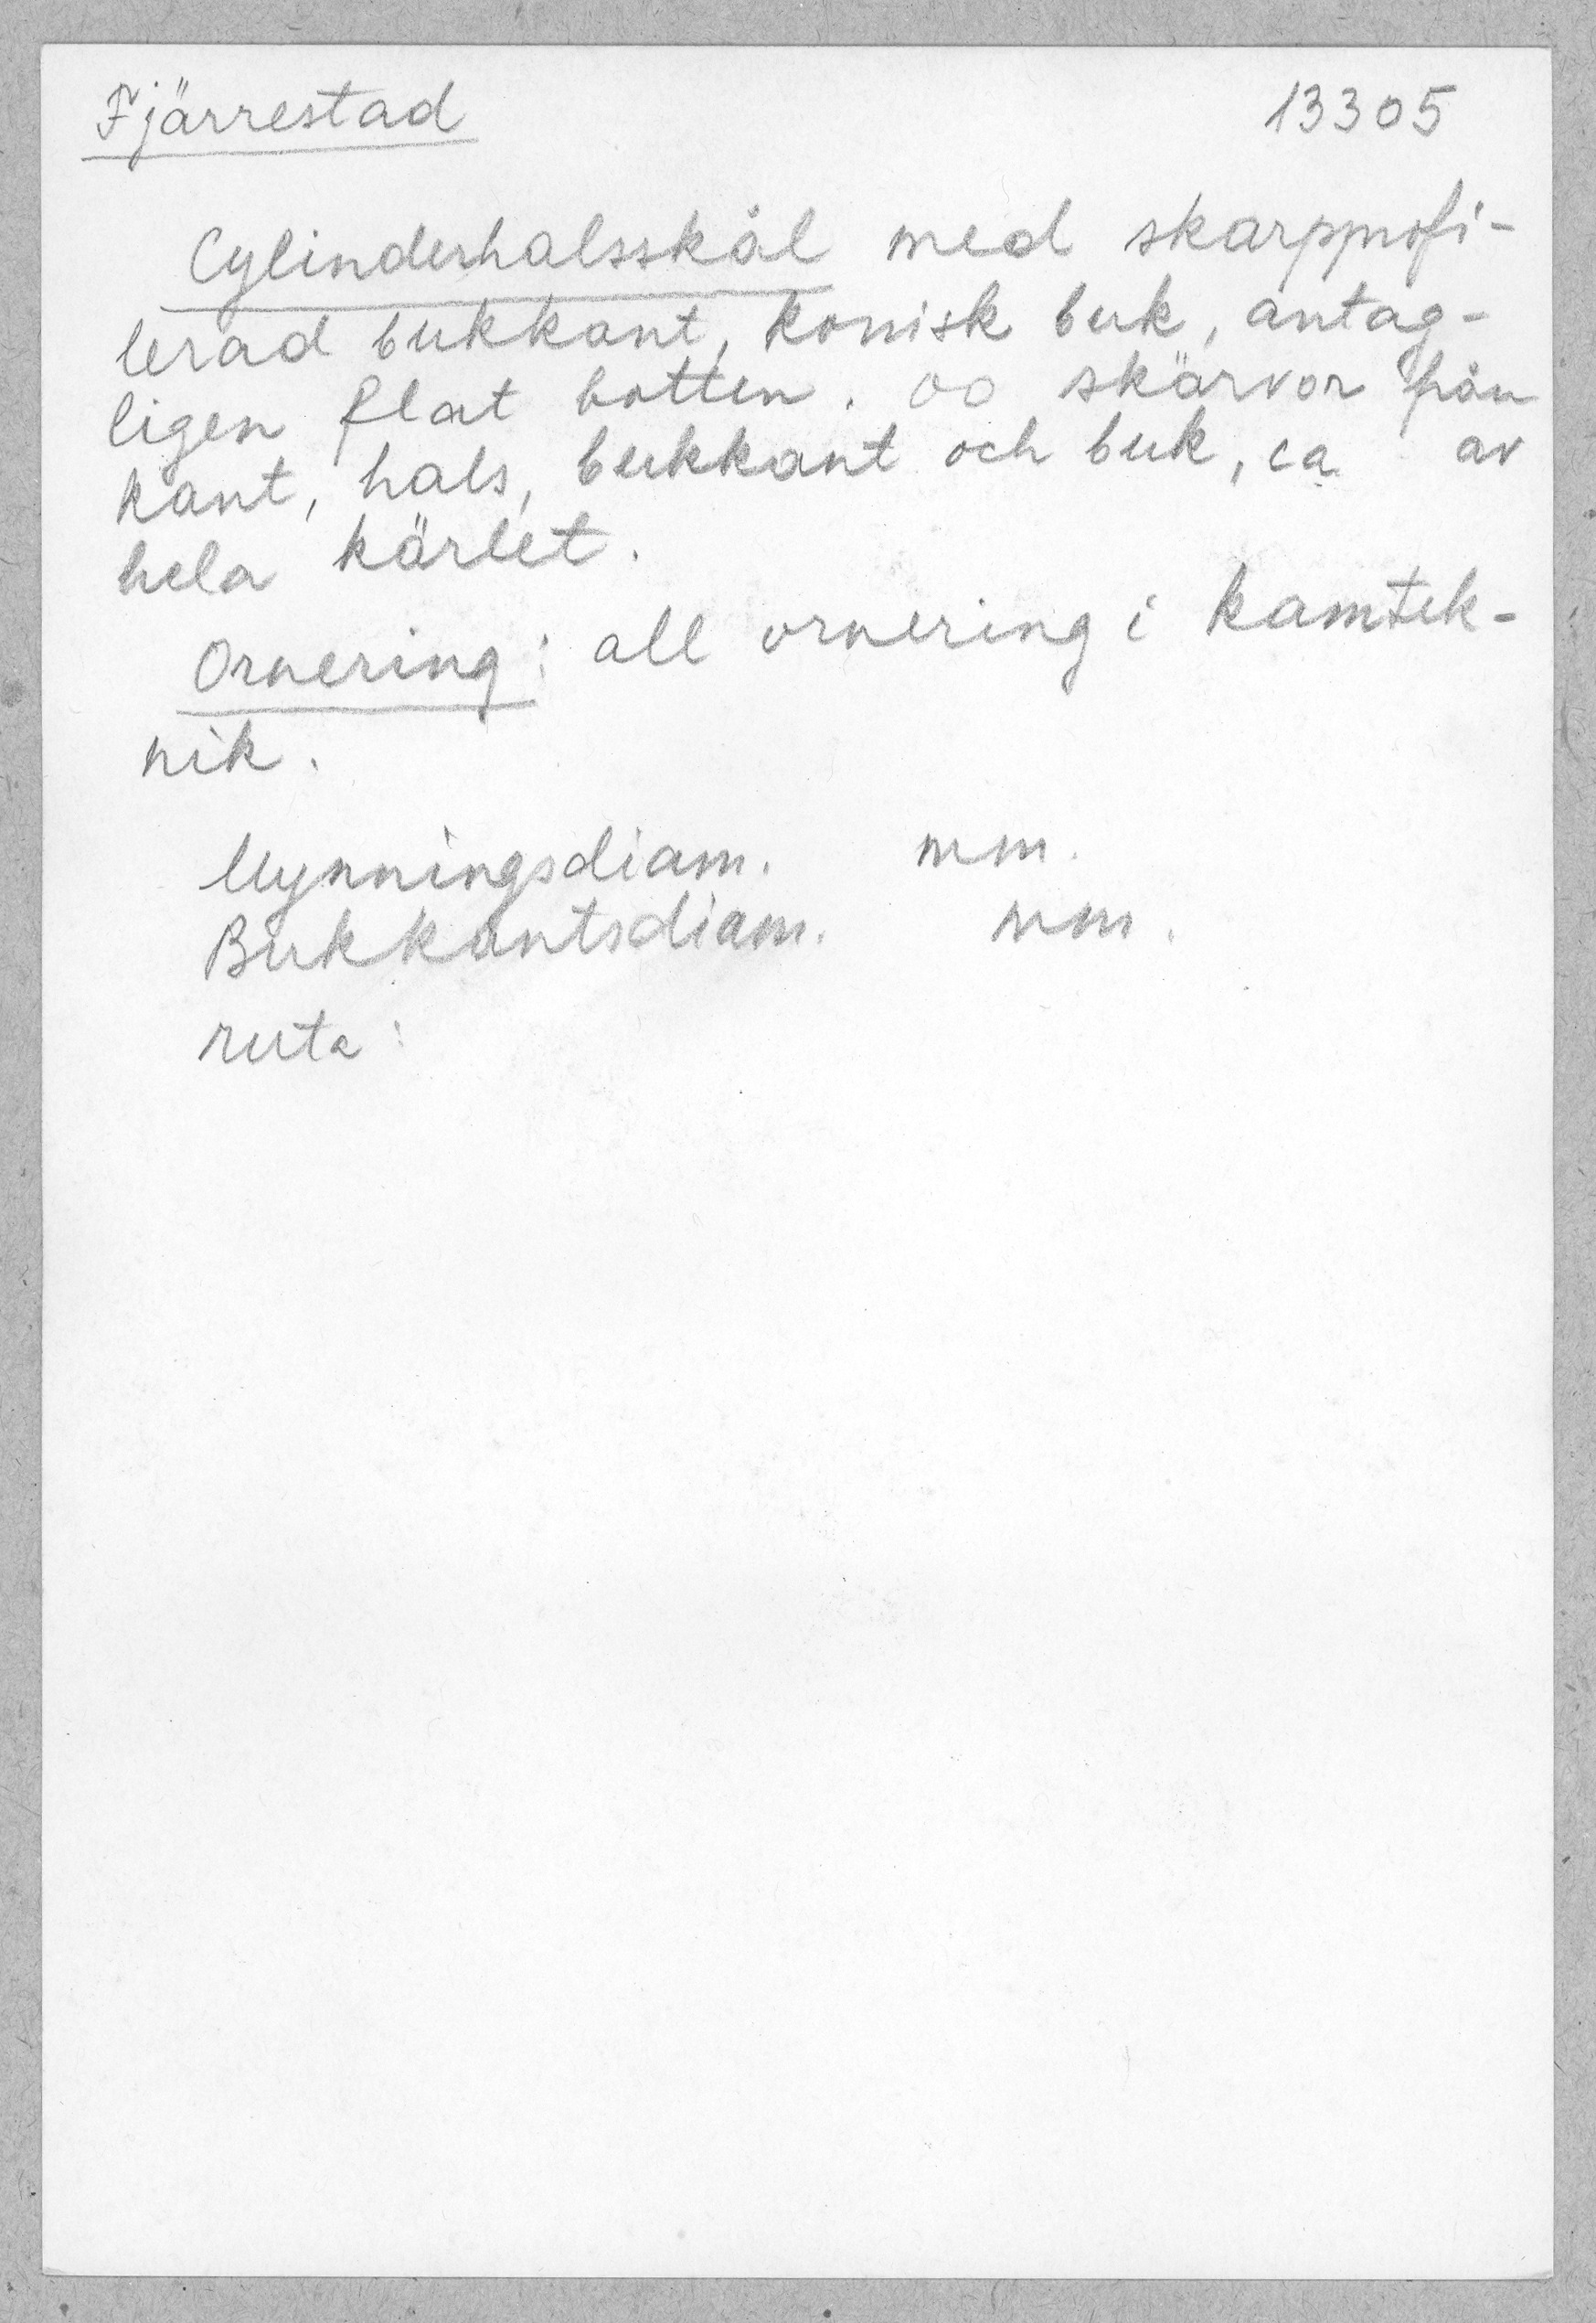 Fjärrestad 13305
Cylinderhalsskål med skarpprofi-
lerad bukkant, konisk buk, antag-
ligen flat botten. oo skärvor från
kant, hals, bukkant och buk, ca av
hela kärlet.
Ornering: all ornering i kamtek-
nik.
Mynningsdiam. mm.
Bukkantsdiam. mm.
ruta: